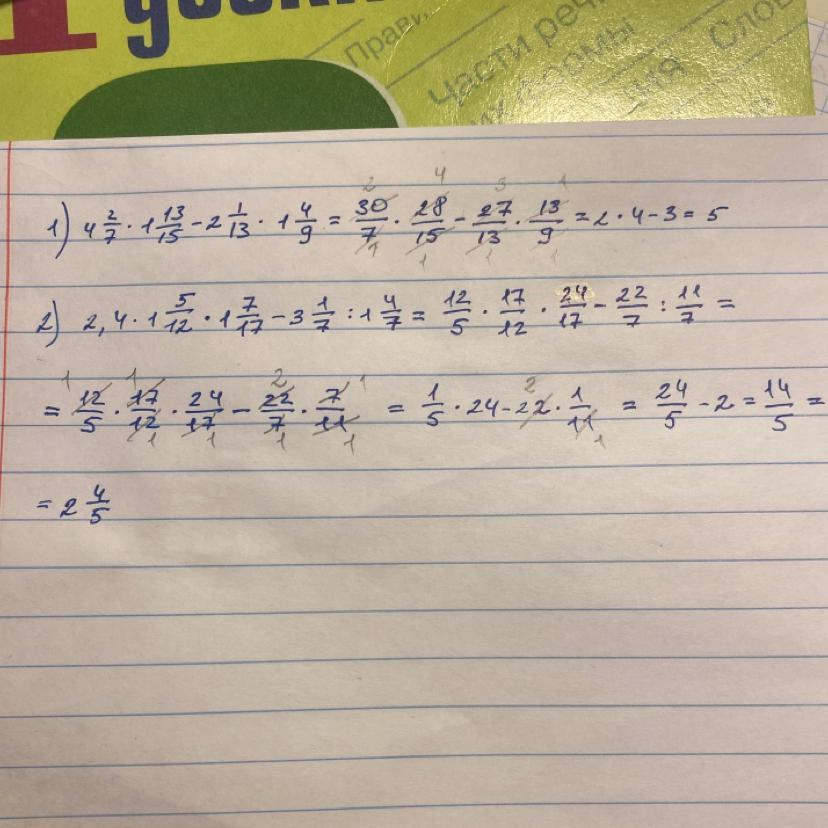 Прави
Части речи
их формы
Слов
1) 4 2/7 · 1 13/15 - 2 1/13 · 1 4/9 = 30/7 · 28/15 - 27/13 · 13/9 = 2 · 4 - 3 = 5
2) 2,4 · 1 5/12 · 1 7/17 - 3 1/7 : 1 4/7 = 12/5 · 17/12 · 24/17 - 22/7 : 11/7 =
= 12/5 · 17/12 · 24/17 - 22/7 · 7/11 = 1/5 · 24 - 22 · 1/11 = 24/5 - 2 = 14/5 =
= 2 4/5